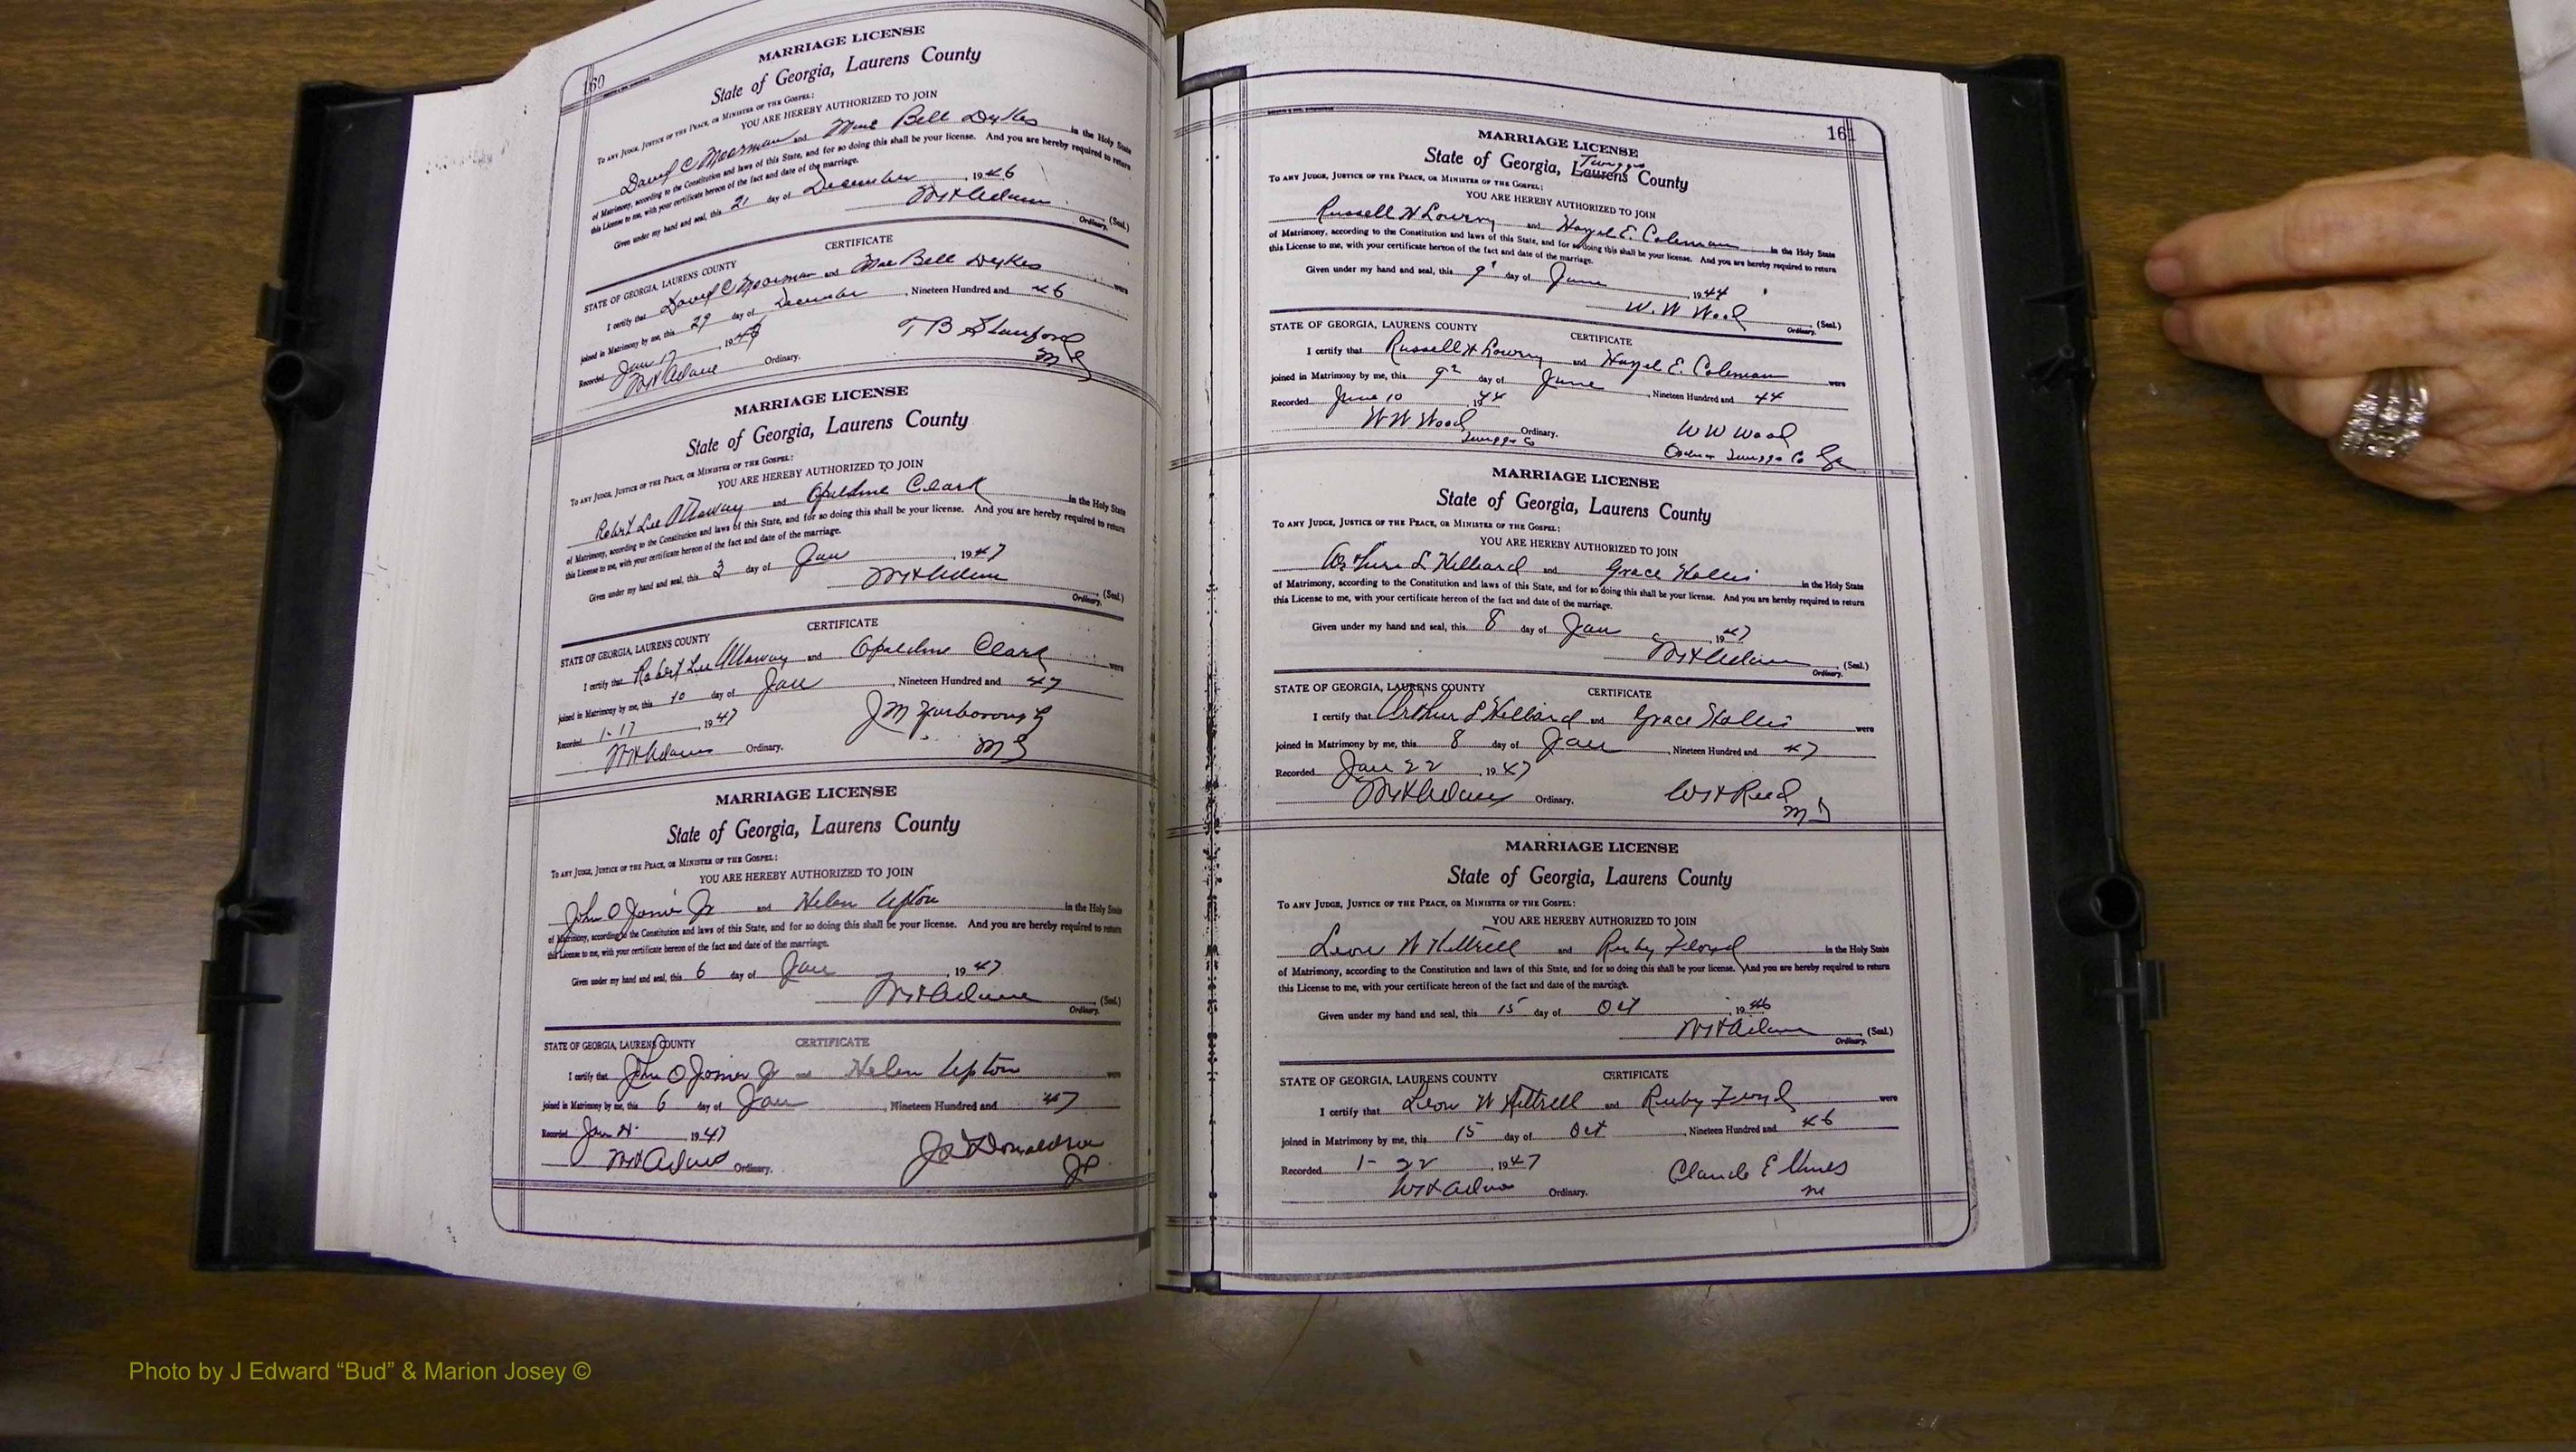 160
MARRIAGE LICENSE
State of Georgia, Laurens County
TO ANY JUDGE, JUSTICE OF THE PEACE, OR MINISTER OF THE GOSPEL:
YOU ARE HEREBY AUTHORIZED TO JOIN
David C Moorman and Mae Bell Dykes in the Holy State
of Matrimony, according to the Constitution and laws of this State, and for so doing this shall be your license. And you are hereby required to return
this License to me, with your certificate hereon of the fact and date of the marriage.
Given under my hand and seal, this 21 day of December, 1946
Ordinary. (Seal.)
CERTIFICATE
STATE OF GEORGIA, LAURENS COUNTY
I certify that David C Moorman and Mae Bell Dykes were
joined in Matrimony by me, this 29 day of December, Nineteen Hundred and 46
Recorded Jan 17, 194
Ordinary.
T B
MG
MARRIAGE LICENSE
State of Georgia, Laurens County
TO ANY JUDGE, JUSTICE OF THE PEACE, OR MINISTER OF THE GOSPEL:
YOU ARE HEREBY AUTHORIZED TO JOIN
Robert Lee Attaway and Opaldine Clark in the Holy State
of Matrimony, according to the Constitution and laws of this State, and for so doing this shall be your license. And you are hereby required to return
this License to me, with your certificate hereon of the fact and date of the marriage.
Given under my hand and seal, this 3 day of Jan, 1947
Ordinary. (Seal.)
CERTIFICATE
STATE OF GEORGIA, LAURENS COUNTY
I certify that Robert Lee Attaway and Opaldine Clark were
joined in Matrimony by me, this 10 day of Jan, Nineteen Hundred and 47
Recorded 1-17, 1947
Ordinary.
J M Yarborough
MG
MARRIAGE LICENSE
State of Georgia, Laurens County
TO ANY JUDGE, JUSTICE OF THE PEACE, OR MINISTER OF THE GOSPEL:
YOU ARE HEREBY AUTHORIZED TO JOIN
John O Joiner Jr and Helen Upton in the Holy State
of Matrimony, according to the Constitution and laws of this State, and for so doing this shall be your license. And you are hereby required to return
this License to me, with your certificate hereon of the fact and date of the marriage.
Given under my hand and seal, this 6 day of Jan, 1947
Ordinary. (Seal.)
STATE OF GEORGIA, LAURENS COUNTY CERTIFICATE
I certify that John O Joiner Jr and Helen Upton were
joined in Matrimony by me, this 6 day of Jan, Nineteen Hundred and 47
Recorded Jan, 1947
Ordinary.
Donaldson
JP
161
MARRIAGE LICENSE
Twiggs
State of Georgia, Laurens County
TO ANY JUDGE, JUSTICE OF THE PEACE, OR MINISTER OF THE GOSPEL:
YOU ARE HEREBY AUTHORIZED TO JOIN
Russell H Lowry and Hazel E. Coleman in the Holy State
of Matrimony, according to the Constitution and laws of this State, and for so doing this shall be your license. And you are hereby required to return
this License to me, with your certificate hereon of the fact and date of the marriage.
Given under my hand and seal, this 9 day of June, 1944
W. W Wood
Ordinary. (Seal.)
STATE OF GEORGIA, LAURENS COUNTY CERTIFICATE
I certify that Russell H Lowry and Hazel E. Coleman were
joined in Matrimony by me, this 9 day of June, Nineteen Hundred and 44
Recorded June 10 1944
W W Wood Ordinary.
Twiggs Co
W W Wood
Twiggs Co Ga
MARRIAGE LICENSE
State of Georgia, Laurens County
TO ANY JUDGE, JUSTICE OF THE PEACE, OR MINISTER OF THE GOSPEL:
YOU ARE HEREBY AUTHORIZED TO JOIN
Arthur L Hilliard and Grace Hollis in the Holy State
of Matrimony, according to the Constitution and laws of this State, and for so doing this shall be your license. And you are hereby required to return
this License to me, with your certificate hereon of the fact and date of the marriage.
Given under my hand and seal, this 8 day of Jan, 1947
(Seal.)
Ordinary.
STATE OF GEORGIA, LAURENS COUNTY CERTIFICATE
I certify that Arthur L Hilliard and Grace Hollis were
joined in Matrimony by me, this 8 day of Jan, Nineteen Hundred and 47
Recorded Jan 22, 1947
Ordinary.
Reed
MARRIAGE LICENSE
State of Georgia, Laurens County
TO ANY JUDGE, JUSTICE OF THE PEACE, OR MINISTER OF THE GOSPEL:
YOU ARE HEREBY AUTHORIZED TO JOIN
Leon W Kittrell and Ruby Floyd in the Holy State
of Matrimony, according to the Constitution and laws of this State, and for so doing this shall be your license. And you are hereby required to return
this License to me, with your certificate hereon of the fact and date of the marriage.
Given under my hand and seal, this 15 day of Oct, 1946
(Seal.)
Ordinary.
STATE OF GEORGIA, LAURENS COUNTY CERTIFICATE
I certify that Leon W Kittrell and Ruby Floyd were
joined in Matrimony by me, this 15 day of Oct, Nineteen Hundred and 46
Recorded 1-22, 1947
Ordinary.
Claude E Vines
Photo by J Edward “Bud” & Marion Josey ©